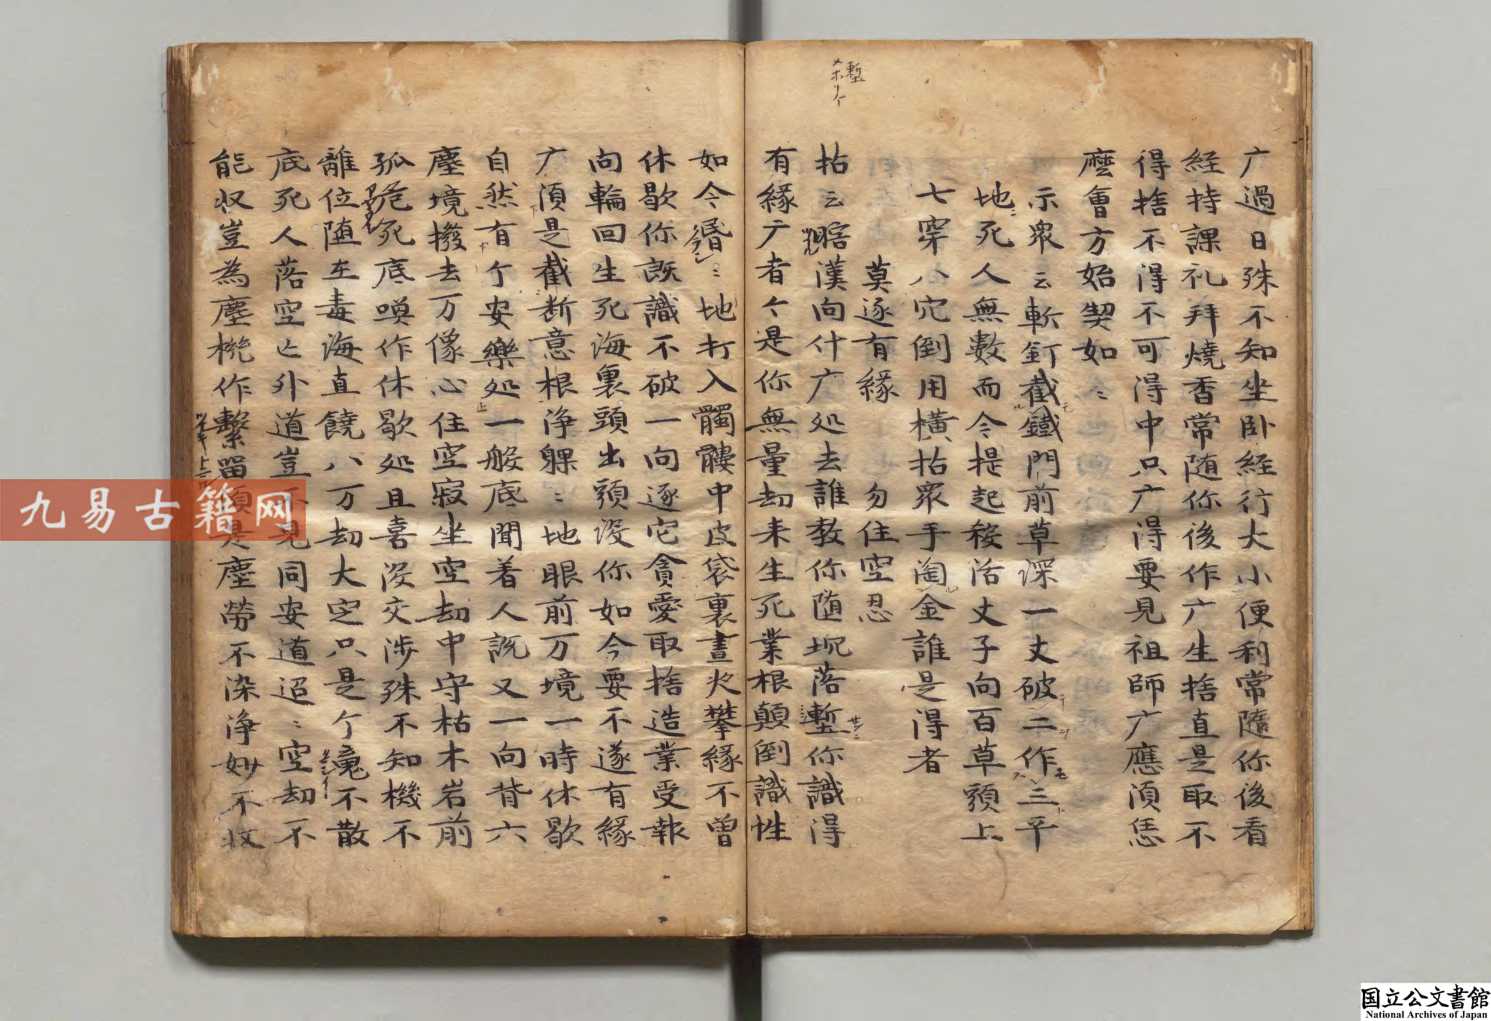 广過日殊不知坐卧経行大小便利常隨你後看
経持課礼拜燒香常随你後作广生捨直是取不
得捨不得不可得中只广得要見祖師广應湏恁
麼會方始契如
示衆云斬釘截鐵門前草深一丈破二作三平
地死人無數而今提起稜活丈子向百草頭上
七穿八穴倒用橫拈衆手淘金誰是得者
莫逐有緣 勿住空忍
拈云瞎漢向什广処去誰教你随坑落塹你識得
有緣广者个是你無量劫来生死業根顛倒識性
如今昏〻地打入髑髏中皮袋裏晝夜攀緣不曾
休歇你既識不破一向逐它貪愛取捨造業受報
向輪回生死海裏頭出頭沒你如今要不遂有緣
广湏是截断意根浄躶〻地眼前万境一時休歇
自然有个安樂処一般底聞着人説又一向背六
塵境撥去万像心住空寂坐空劫中守枯木岩前
孤危死底嘆作休歇処且喜没交渉殊不知機不
離位随在毒海直饒八万劫大定只是个䰟不散
底死人落空亡外道豈不見同安道迢〻空劫不
能収豈為塵機作繫留頭是塵勞不染浄妙不収
塹
国立公文書館
National Archives of Japan
九易古籍网